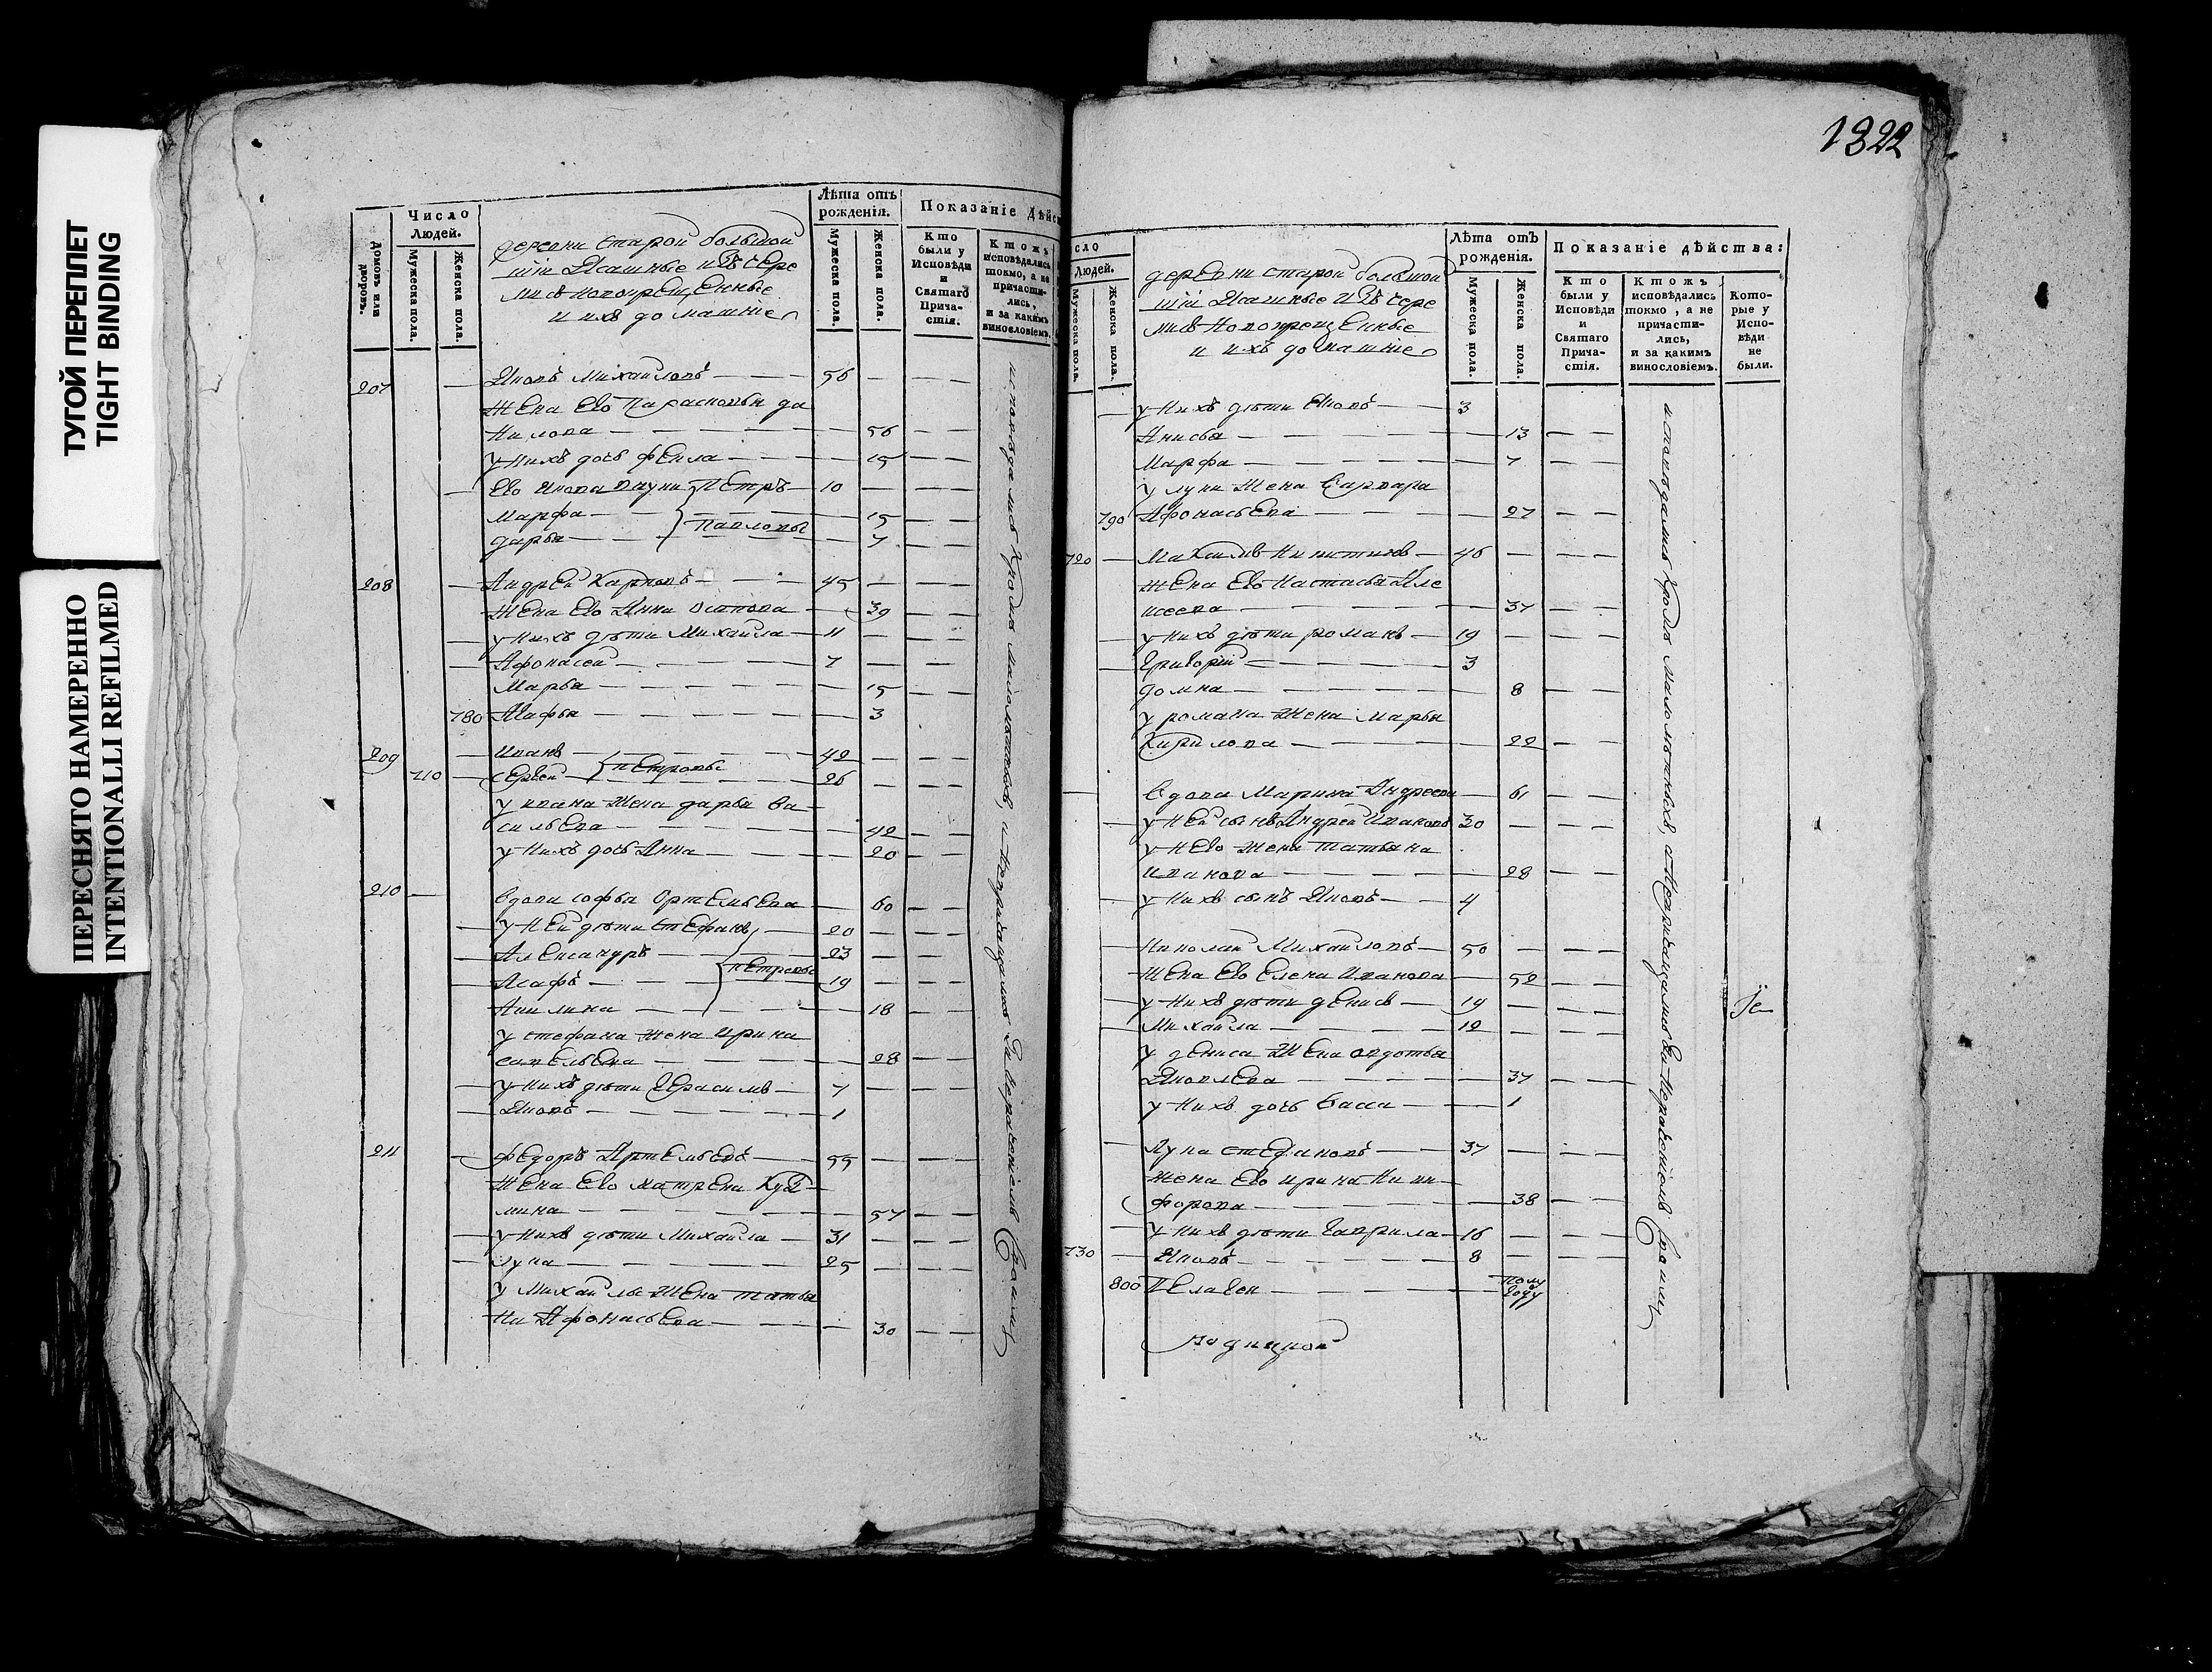 ТУГОЙ ПЕРЕПЛЕТ
TIGHT BINDING
ПЕРЕСНЯТО НАМЕРЕННО
INTENTIONALLI REFILMED
Домовъ или дворовъ.
Число Людей.
Мужеска пола.
Женска пола.
деревни старой большой
шiи Ясашные изъ чере
мисъ новокрещенные
и ихъ домашнiе
Лѣта отъ рожденiя.
Мужеска пола.
Женска пола.
Показанiе Дѣйс
Кто были у Исповѣди и Святаго Причастiя.
Ктожъ исповѣдались токмо, а не причастились, и за какимъ винословiемъ.
207 — Яковъ Михаиловъ — 56 —
Жена Ево Парасковья да
нилова — 56
у нихъ дочь феила — 15
Ево Якова внуки Петръ — 10 —
Марфа — 15
Павловы
дарья — 7
208 — Андрей Карповъ — 45 —
Жена Ево Анна Осипова — 39
у нихъ дѣти Михаила — 11 —
Афонасей — 7 —
Марья — 15
780 Мафья — 3
209 — Иванъ — 42 —
Петровы
710 — Сергей — 26 —
у ивана Жена дарья ва
сильева — 42
у нихъ дочь Анна — 20
210 — вдова софья Ортемьева — 60
у ней дѣти стефанъ — 20 —
Александръ — 23 —
Петровы
Асафъ — 19 —
Акилина — 18
у стефана жена ирина
савельева — 28
у нихъ дѣти Герасимъ — 7 —
Яковъ — 1
211 — федоръ Артемьевъ — 55 —
Жена Ево матрена Куз
мина — 57
у нихъ дѣти Михаила — 31 —
лука — 25 —
у Михаилы Жена татья
на Афонасьева — 30
исповѣдались кроме малолѣтныхъ, а непричащались за нерачениемъ
1322
сло
Людей.
Мужеска пола.
Женска пола.
деревни старой большой
шiи Ясашные изъ чере
мисъ Новокрещенные
и ихъ домашнiе
Лѣта отъ рожденiя.
Мужеска пола.
Женска пола.
Показанiе дѣйства:
Кто были у Исповѣди и Святаго Причастiя.
Ктожъ исповѣдались токмо, а не причастились, и за какимъ винословiемъ.
Которые у Исповѣди не были.
у нихъ дѣти Яковъ — 3
Анисья — 13
Марфа — 7
у луки Жена варвара
790 Афонасьева — 27
720 — Максимъ Никитинъ — 46 —
жена Ево Настасья Але
ксеева — 37
у нихъ дѣти романъ — 19 —
Григорiй — 3
домна — 8
у романа Жена марья
Кирилова — 22
вдова Марина Андреева — 61
у ней сынъ Андрей Ивановъ 30 —
у нево жена татьяна
иванова — 28
у нихъ сынъ Яковъ — 4
Николай Михаиловъ — 50 —
Жена Ево Елена Иванова — 52
у нихъ дѣти денисъ — 19 —
Михаила — 12 —
у дениса Жена авдотья
Яковлева — 37
у нихъ дочь васса — 1
лука стефановъ — 37 —
жена Ево ирина Ники
форова — 38
у нихъ дѣти Гаврила — 16 —
730 — Яковъ — 8 —
800 Пелагея — полу году
исповѣдались кроме малолѣтныхъ, а непричащались за нерачениемъ